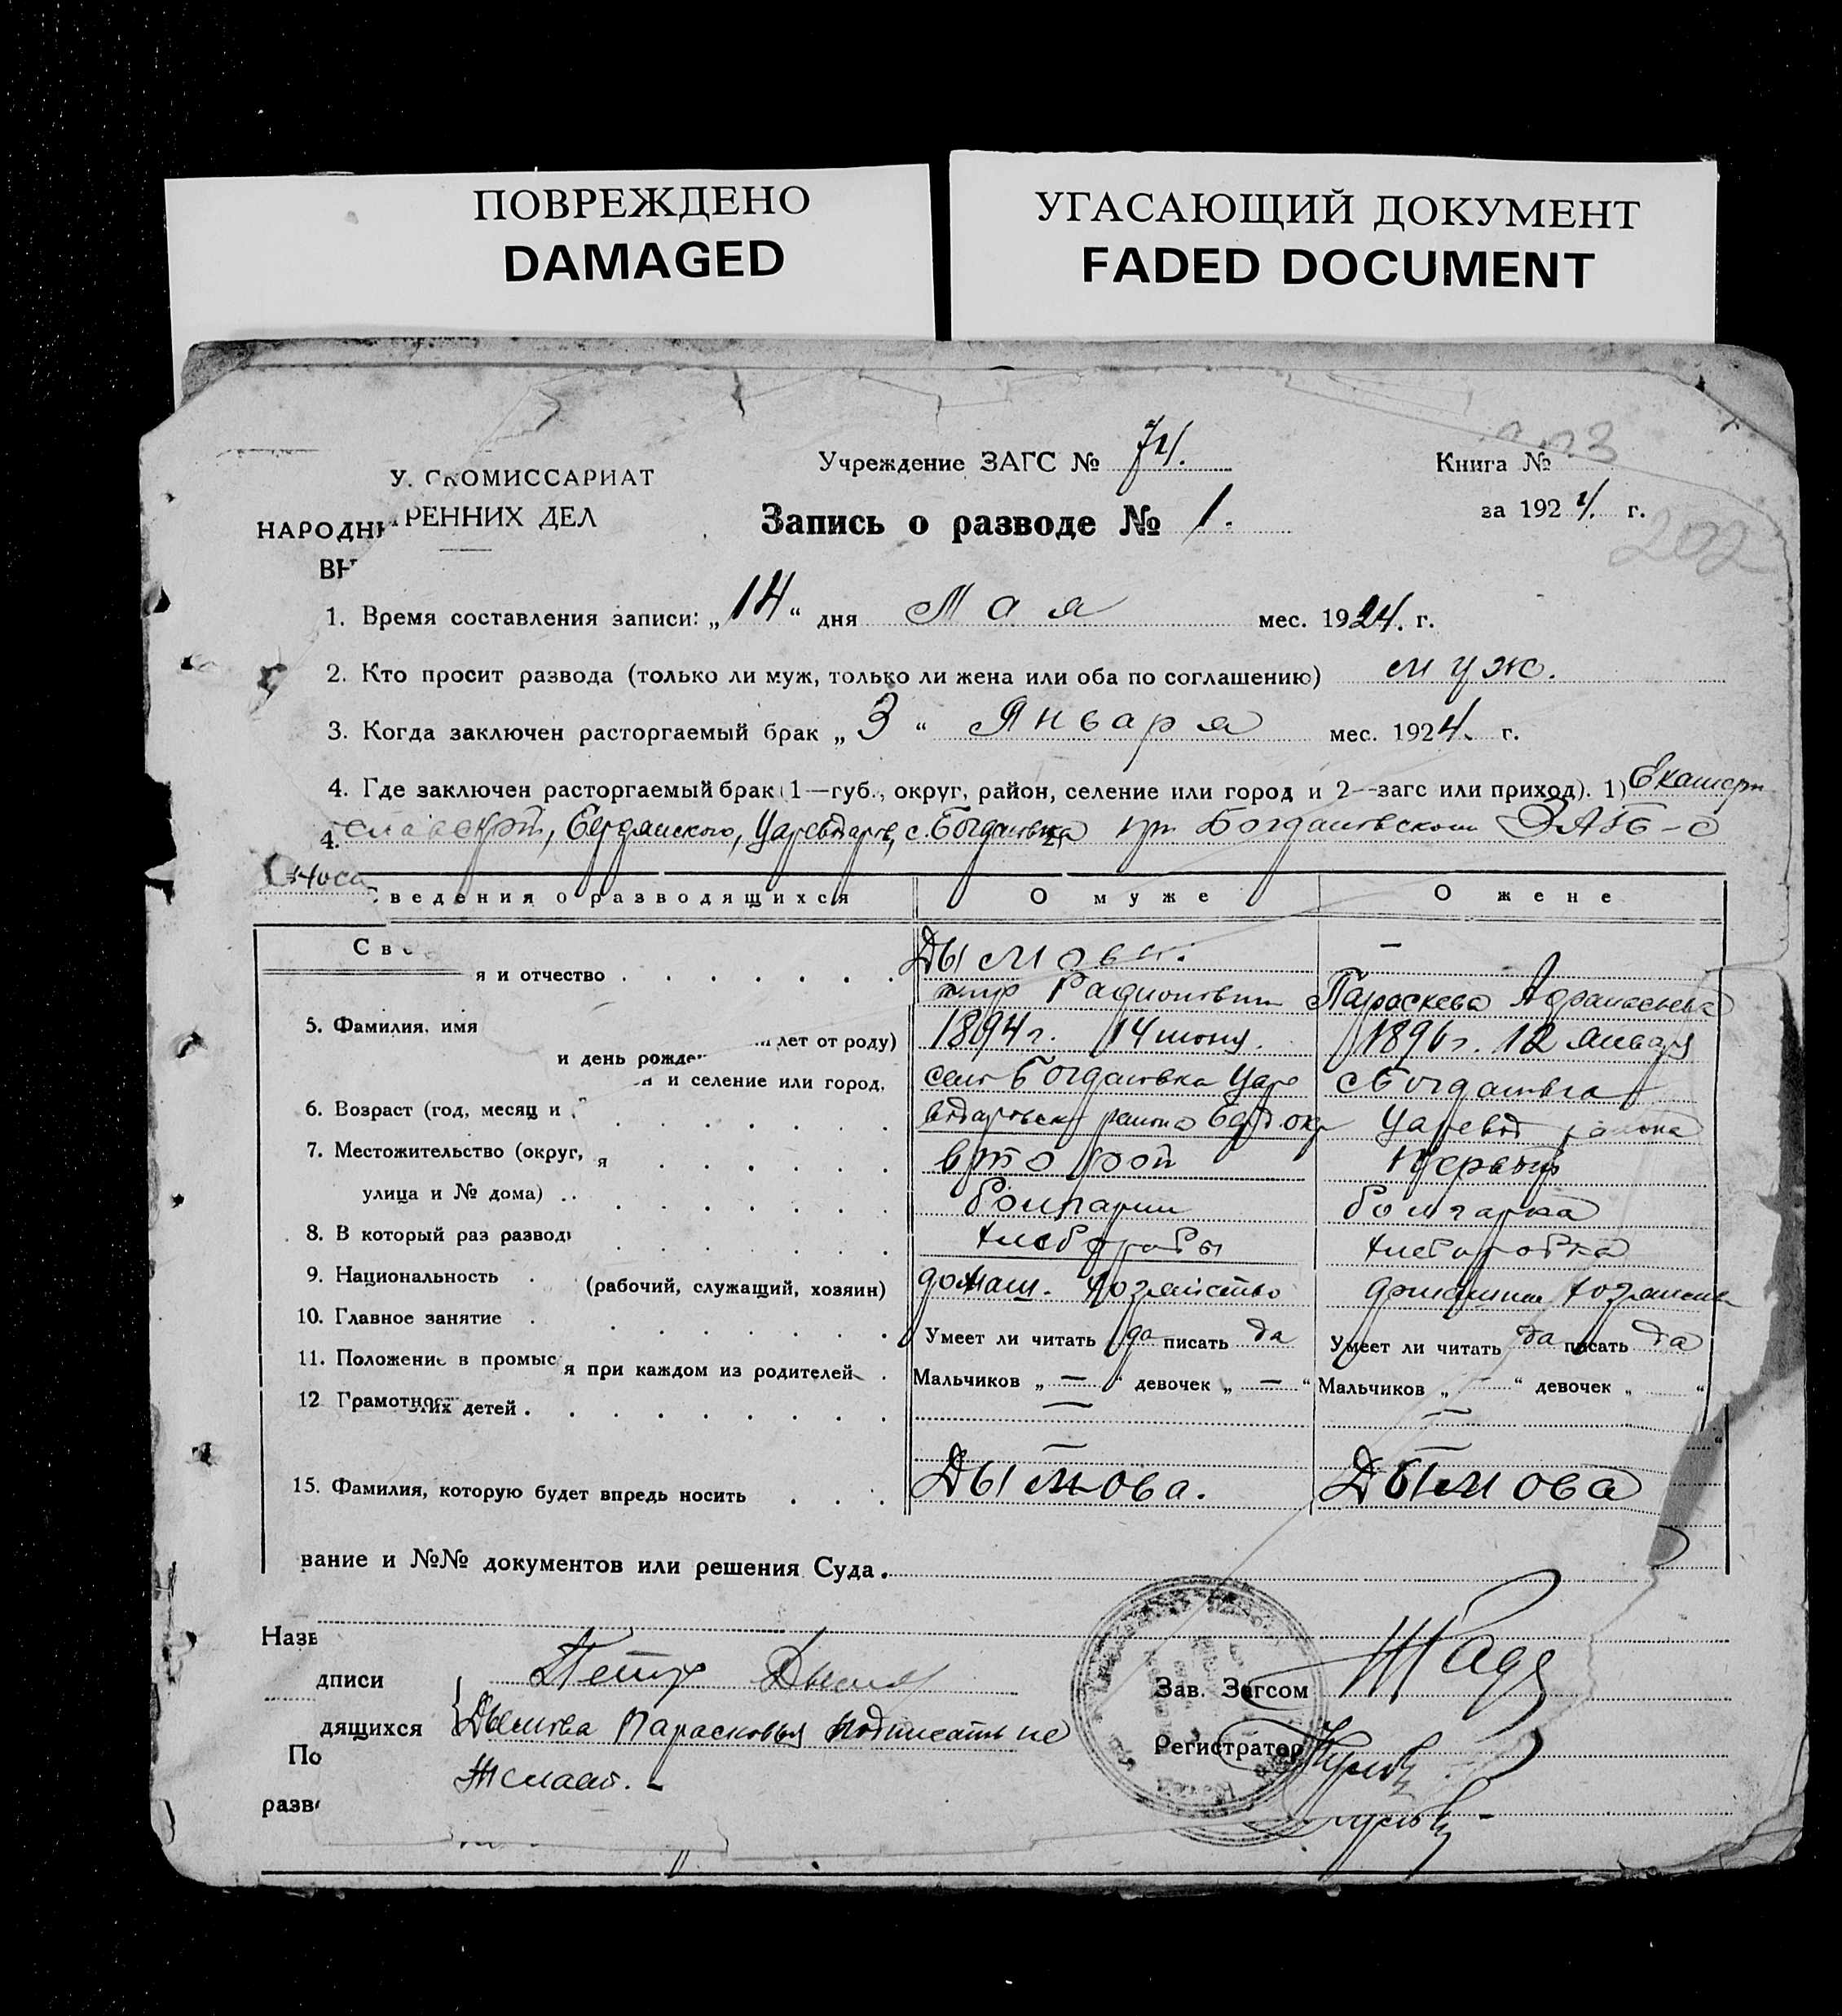 ПОВРЕЖДЕНО
DAMAGED
УГАСАЮЩИЙ ДОКУМЕНТ
FADED DOCUMENT
Учреждение ЗАГС № 74.
Книга №
СКОМИССАРИАТ
НАРОДН РЕННИХ ДЕЛ
ВН
Запись о разводе № 1.
за 1924. г.
202
1. Время составления записи: „14“ дня Мая мес. 1924. г.
2. Кто просит развода (только ли муж, только ли жена или оба по соглашению) муж.
3. Когда заключен расторгаемый брак „3“ Января мес. 1924. г.
4. Где заключен расторгаемый брак (1—губ., округ, район, селение или город и 2—загс или приход). 1) Екатерин
4. Бердянского, с. Богдановка 2) при Богдановском ЗАГС-е
ведения о разводящихся О муже О жене
Све
я и отчество Дымовы. —
Радионович Параскева
5. Фамилия, имя
лет от роду) 1894 г. 14 июня. 1896 г. 12 Января
и день рожден
и селение или город, село Богдановка Царе с. Богдановка
6. Возраст (год, месяц и
района Берд. окр Царевод района
7. Местожительство (округ, я второй первый
улица и № дома) болгарин болгарка
8. В который раз развод хлебороб хлеборобка
9. Национальность
(рабочий, служащий, хозяин) домаш. хозяйство
10. Главное занятие
Умеет ли читать да писать да Умеет ли читать да писать да
11. Положение в промыс
я при каждом из родителей Мальчиков „—“ девочек „—“ Мальчиков „—“ девочек „ “
12 Грамотнос
их детей — —
— —
15. Фамилия, которую будет впредь носить Дымова. Дымова
вание и №№ документов или решения Суда
Назв
дписи Петр Дымов
Зав. Загсом
дящихся Дымова Парасковья подписать не
Регистратор
По
желает. -
разв